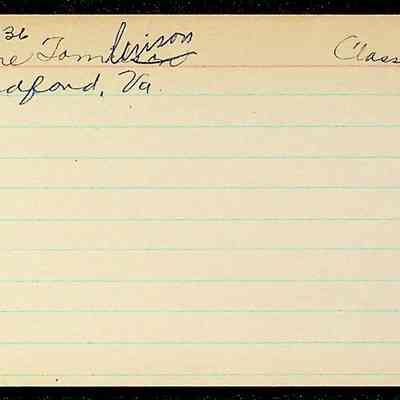 36
re Tomlinson Class
dford, Va.